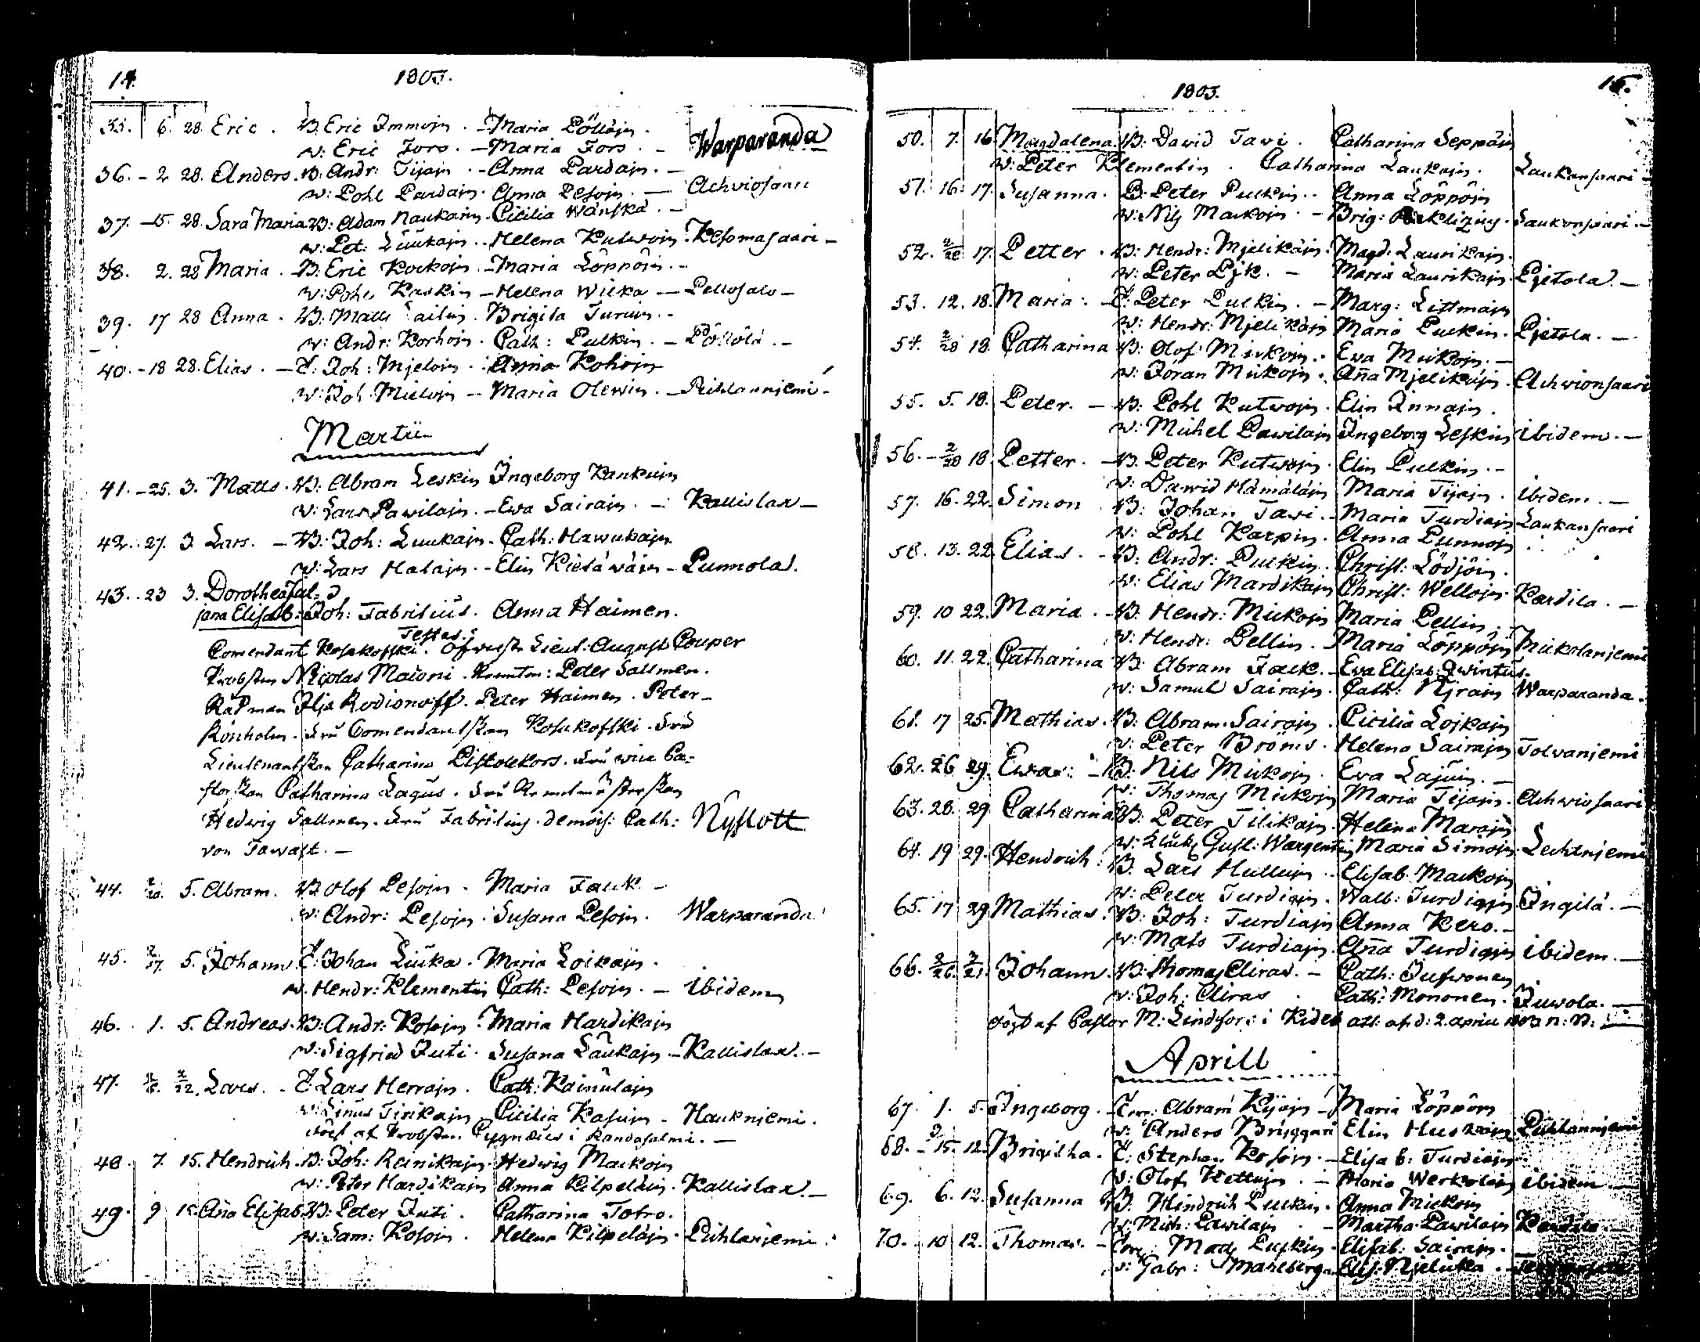 14.
1803.
35. 6. 28. Eric. B. Eric Immojn. Maria Pöllöjn.
w: Eric Fors. Maria Fors. Warparanda
36. 2. 28. Anders. B: Andr: Tijain. Anna Pardain.
w: Pohl Pardain. Anna Pesojn. Achviosaari
37. 5. 28. Sara Maria B: Adam Naukarin. Cicilia Wänskä.
w: Pet: Luukain. Helena Kutwojn. Kesomasaari
38. 2. 28 Maria. B: Eric Kockojn. Maria Löppöjn.
w: Pohl Kaskin Helena Wilka Pellosalo
39. 17 28 Anna. B: Matts Brigita Turun.
w: Andr: Korhojn. Cath: Pulkin. Pöllölä.
40. 18 28. Elias. Joh: Mjeloin. Anna Kohojn
w: Joh: Mieloin Maria Olewin. Pihlaniemi.
Martii
41. 25. 3. Matts. B: Abram Leskin Ingeborg Kankuin
w: Lars Pawilajn. Ewa Sairajn. Kallislax
42. 27. 3. Lars. B: Joh: Luukajn. Cath: Hawukajn
w: Lars Halajn. Elin Kietäwäin Punnola.
43. 23 3. Dorothea
Elisab: Joh: Fabritius. Anna Haimen.
Testes:
Comendant Kosakofski. Öfwerste Lieut: August Couper
Probsten Nicolas Maconi. Peter Sallmen.
Rådman Ilja Rodionoff. Peter Haimen. Peter
Rönholm. Fru Comendantskan Kosakofski. Fru
Lieutenantskan Catharina Pistolekors. Fru vice Pa-
storskan Catharina Lagus. Fru
Hedwig Sallmen. Fru Fabritius. demois: Cath: Nyslott
von Tawast.
44. 2/20. 5. Abram. B. Olof Pesojn. Maria Falck
w: Andr: Pesojn. Susana Pesojn. Warparanda
45. 2/27. 5. Johann. Johan Luuka. Maria Loikajn.
w. Hendr: Klementin Cath: Pesojn. ibidem
46. 1. 5. Andreas. B: Andr: Kosojn. Maria Hardikajn
w: Sigfried Juti. Susana Laukajn Kallislax.
47. 2/22. Lars. Lars Herrajn. Cath: Kainulajn
w: Linus Tirikajn Cicilia Kasurin. Haukniemi.
döpt af Probsten Cygnæus i Randasalmi.
48. 7. 15. Hendrich. B: Joh: Reinikajn. Hedwig Mackojn
w: Peter Hardikajn Anna Kilpeläin. Kallislax.
49. 9 15. Aña Elisab. B: Peter Juti. Catharina Totro.
w: Sam: Kosojn. Helena Kilpeläjn. Pihlaniemi.
15.
1803.
50. 7. 16. Magdalena B: David Tavi. Catharina Seppäin
w: Peter Klementin. Catharina Laukajn. Laukansaari
51. 16. 17. Susanna. B: Peter Pulkin. Anna Löppöjn
w: Nils Mackojn. Brig: Laukansaari.
52. 2/28 17. Petter. B: Hendr: Mjelikäin. Magd: Laurikajn.
w: Peter Maria Laurikajn. Pjetola.
53. 12. 18. Maria. Peter Pulkin. Marg: Littmajn
w: Hendr: Mjelikäin Maria Pulkin. Pjetola.
54. 2/28 18 Catharina B: Olof Mickojn. Eva Mickojn.
w: Jöran Mickojn. Aña Mjelikäjn. Achvionsaari
55. 5. 18. Peter. B: Pohl Kutwojn. Elin Innajn.
w: Michel Pawilajn Ingeborg Leskin ibidem.
56. 2/28 18 Petter. B. Peter Kutwojn. Elin Pulkin.
w: Dawid Hämäläjn Maria Tijajn. ibidem.
57. 16. 22. Simon B: Johan Tavi. Maria Turdiajn Laukansaari
w: Pohl Karpin. Anna Punnojn
58. 13. 22 Elias. B: Andr: Pulkin. Christ: Lödjöin.
w: Elias Mardikajn Christ: Wellojn. Kardila.
59. 10 22. Maria. B: Hendr: Mickojn Maria Pellin.
w: Hendr: Pellin. Maria Löppöjn Mickolaniemi
60. 11. 22. Catharina B: Abram Falck. Eva Elisab: Qwintus.
w: Samul Sairajn. Cath: Warparanda.
61. 17 25. Mathias. B: Abram Sairajn. Cicilia Lojkajn
w: Peter Broms. Helena Sairajn Tolvaniemi
62. 26 29. Ewa. B: Nils Mickojn. Eva
w: Thomas Mickojn Maria Tijajn. Achviosaari
63. 28. 29. Catharina B: Peter Tilikajn. Helena Marajn
w: Gust: Wargentin Maria Simojn. Lechtniemi
64. 19 29. Hendrich. B: Lars Hulluin. Elisab: Mackojn
w: Peter Turdiajn. Walb: Turdiajn Ingilä.
65. 17 29 Mathias. B: Joh: Turdiajn Anna Kero.
w: Mats Turdiajn. Aña Turdiajn ibidem.
66. 2/26. Johann. B: Thomas Cliras. Cath:
w: Joh: Cliras Cath: Mononen. Juvola.
döpt af Pastor M: Lindfors i Kides att: af d: 2. Aprill 1803
Aprill
67. 1. 5. Ingeborg. Abram Maria Löppöjn
w: Anders Bryggari Elin Huskain Pihlaniemi
68. 15. 12. Brigitha. Stephan Kosojn. Elisab: Turdiajn
w: Olof Kettujn. Maria ibidem
69. 6. 12. Susanna B: Hindrich Pulkin. Anna Mickojn
w: Mich: Pawilajn Martha Pawilajn
70. 10 12. Thomas. Mats Pulkin. Elisab: Sairajn.
w: Gabr: Mahlberg